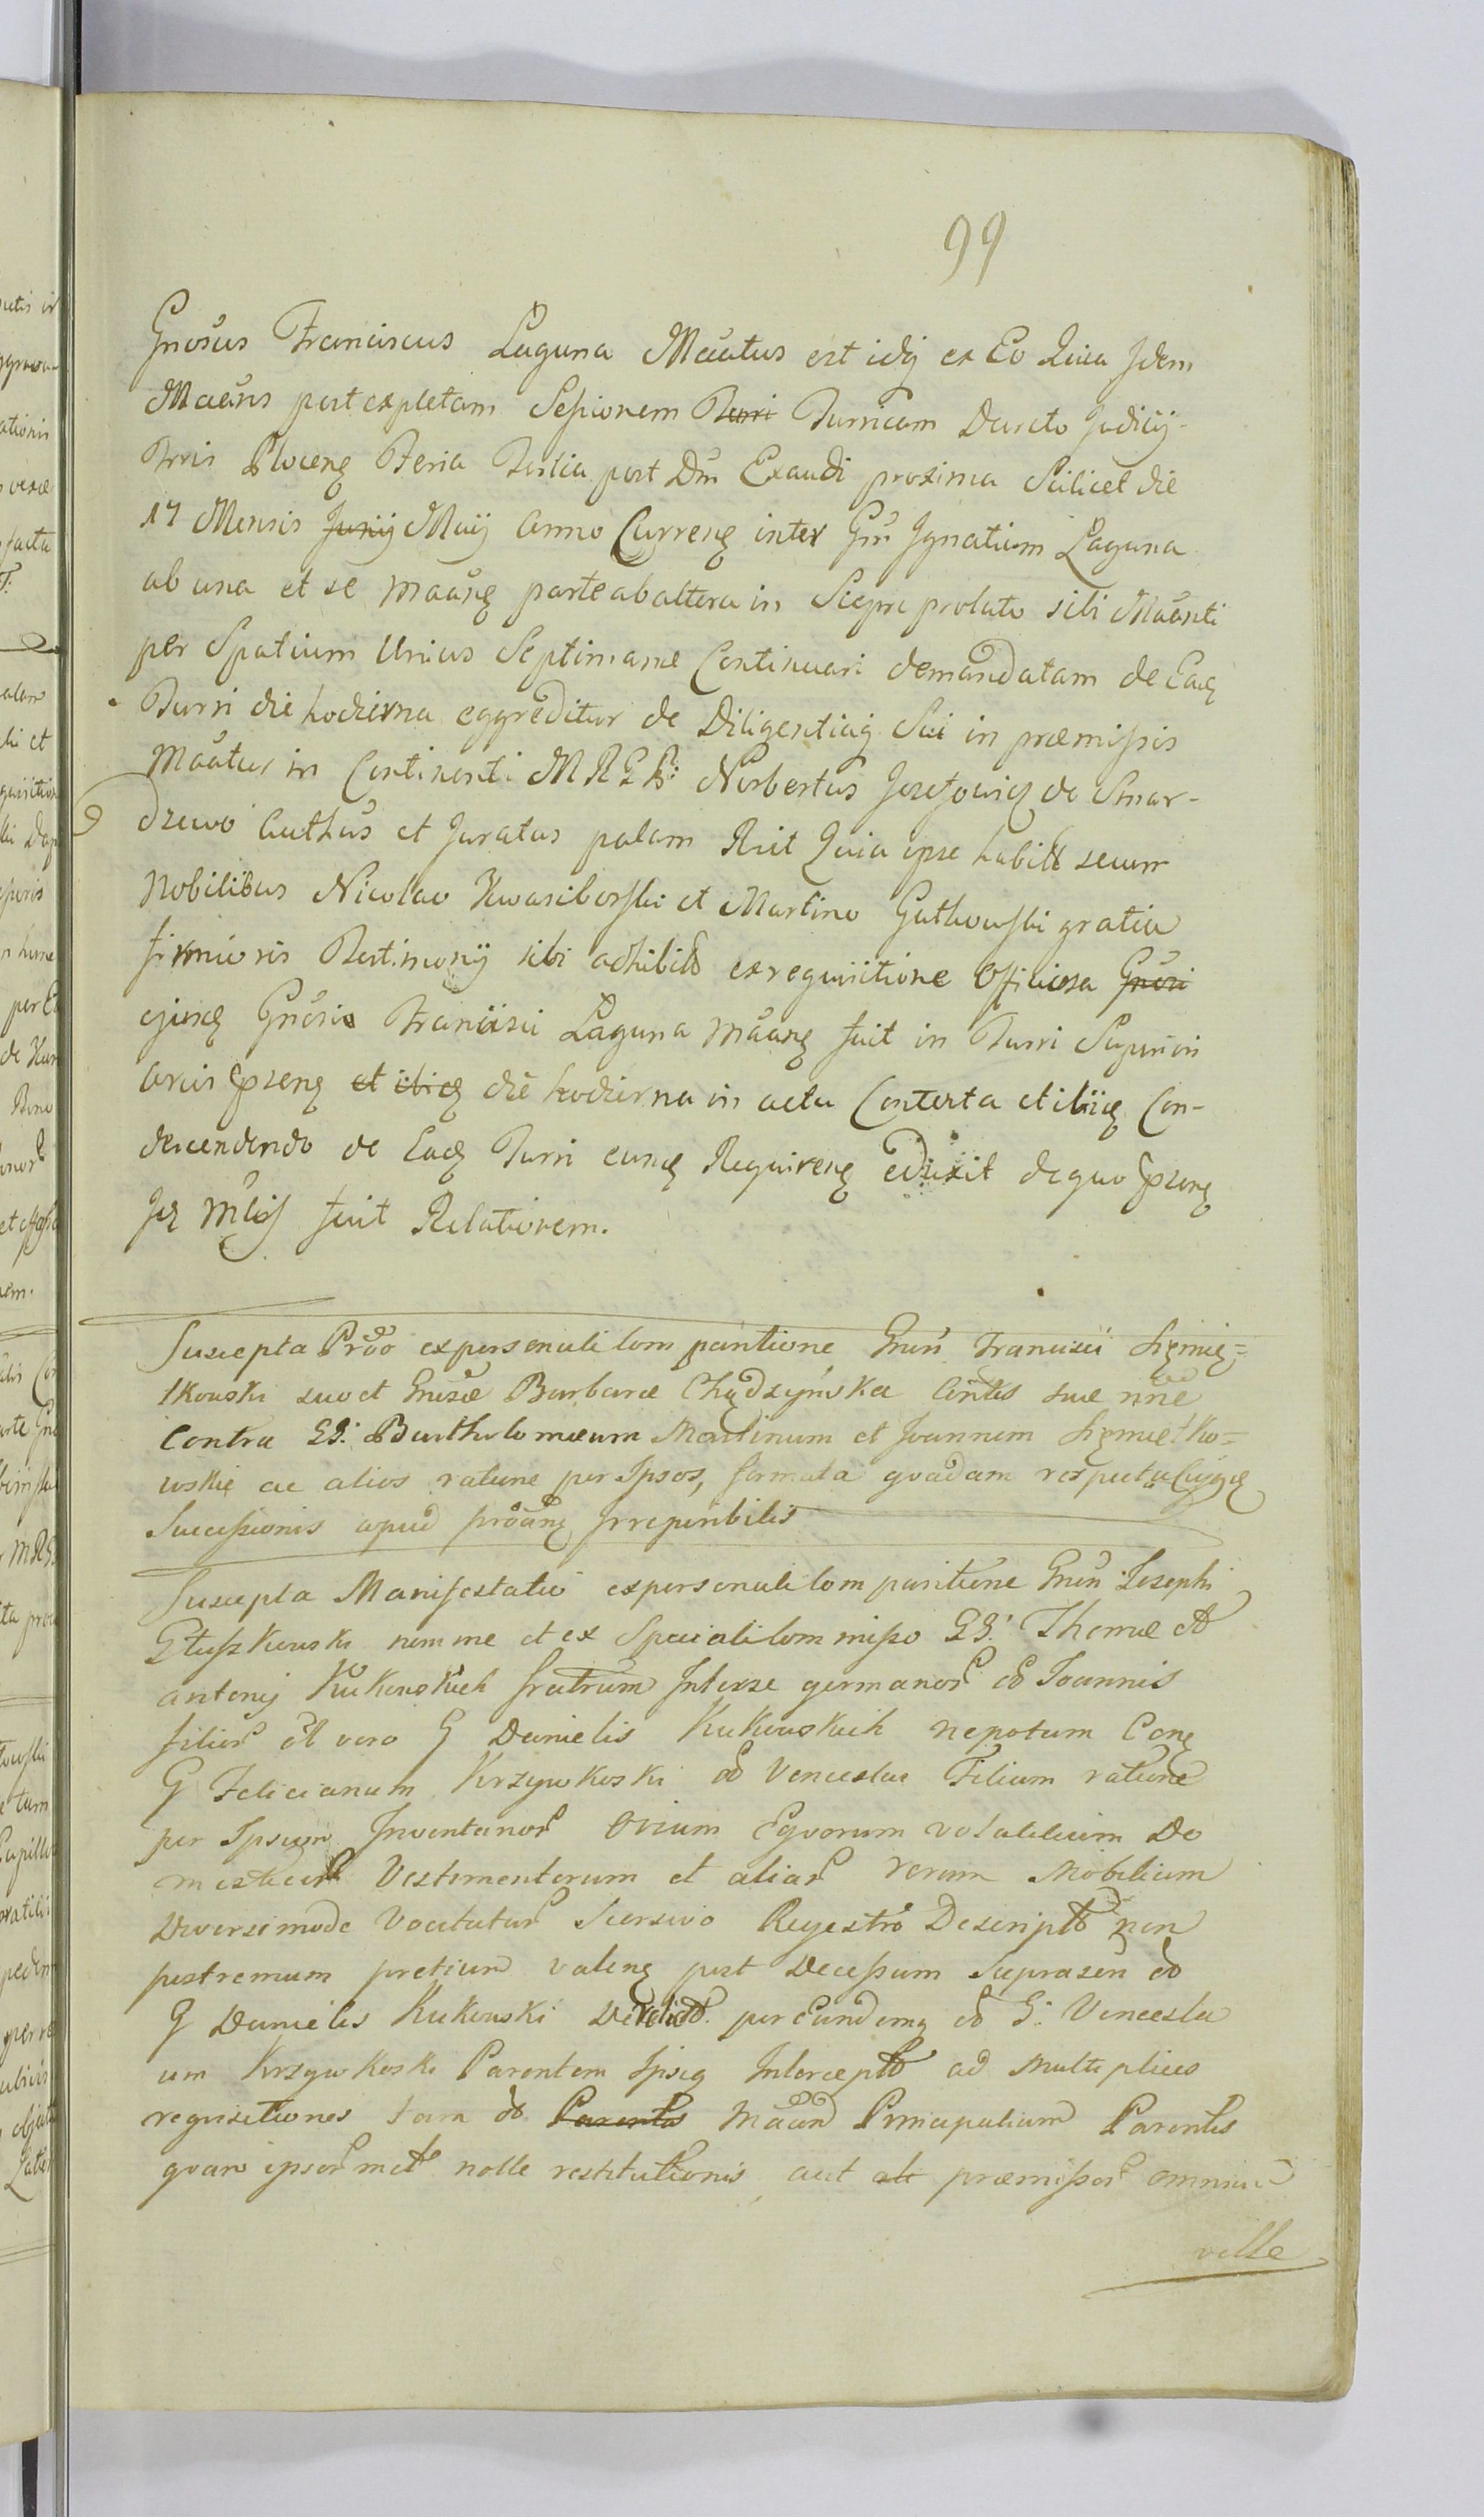 99
Gnosus Franciscus Laguna Maatus est idq ex Eo Quia Idem
Maans post expletam Sessionem Turri Turricam Decreto Judicij
Trris Plocens Feria Tertia post Dm Exaudi proxima Scilicet die
17 Mensis Junij Maij Anno Currenς inter Gm Ignatium Laguna
ab una et se maanς parte ab altera in Scepre prolato sibi Maanti
per Spatium Unius Septimanæ Continuari demandatam de Eadς
Turri die hodierna eggreditur de Diligentiaq Sui in præmissis
Maatur in Continenti MRGB: Norbertus Jozefowicz de Smar-
drzewo Authus et Juratus palam Rcit Quia ipse habitt secum
Nobilibus Nicolao Kwasiborski et Martino Gutkowski gratia
firmioris Testimonij sibi adhibitt ex requisitione Officiosa Gnosi
ejusdς Gnosi Francisci Laguna maanς fuit in Turri Superiori
Arcis Przenς et ibidς die hodierna in actu Contenta et ibidς Con-
descendendo de Eadς Turri eundς Requirenς eduxit de quo przenς
fecit Relationem.
Suscepta Prõo ex personali lom paritione Gnsi Francisci Szmie-
tkowski suo et Gnsæ Barbaræ Chądzyńska Cõntis suæ nne
Contra GG: Bartholomæum Martinum et Joannem Szmietko=
wskie ac alios ratione per Ipsos, formata quadam respectu Cujusς
Successionis apud prõanς Irreperibilis
Suscepta Manifestatio ex personali lom paritione Gnsi Josephi
Głuszkowski nomine et ex Speciali lom misso GG: Thomæ et
Antonij Kukowskich fratrum Interse germanor od Joannis
filior et vero G Danielis Kukowskich nepotum Conς
G Felicianum Krzywkoski od Venceslai Filium ratione
per Ipsum Inventarior Ovium Eqvorum volatilium Do
mesticor Vestimentorum et aliar rerum Mobilium
Diversimode Vocitatar Seorsivo Regestro Descriptt non
postremum pretium valenς post Decessum Suprascn od
G Danielis Kukowski Derelictt. per Eundemq od G: Vencesla
um Krzywkoski Parentem Ipsiς Interceptt ad Multiplices
requisitiones tam od Parentis Maan Principalium Parentis
qvam ipsormett nolle restitutionis aut alt præmissor omnium
velle